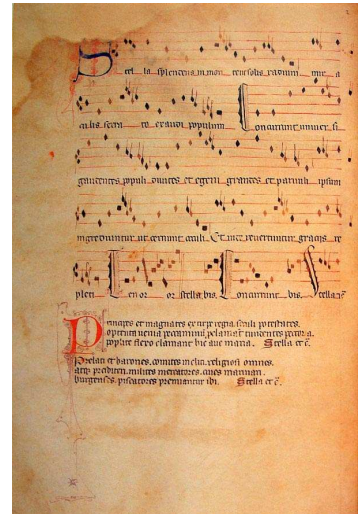 Stel la splendens in mon te ut solis radium mir a
culis serra to exaudi populum Concurrunt univer si
gaudentes populi divites et egeni grandes et parvuli ipsum
ingrediuntur ut cernunt oculi Et inde revertuntur graciis re
pleti Stella bis. Concurrunt bis. Stella
Principes et magnates ex stirpe regia. seculi potestates
optenta venia peccaminum pelant tundentes pectora.
poplite flexo clamant hic ave maria. Stella et c.
Prelati et barones. comites incliti. religiosi omnes.
atque presbiteri. milites mercatores. cives marinari.
burgenses. piscatores premiantur ibi. Stella et c.